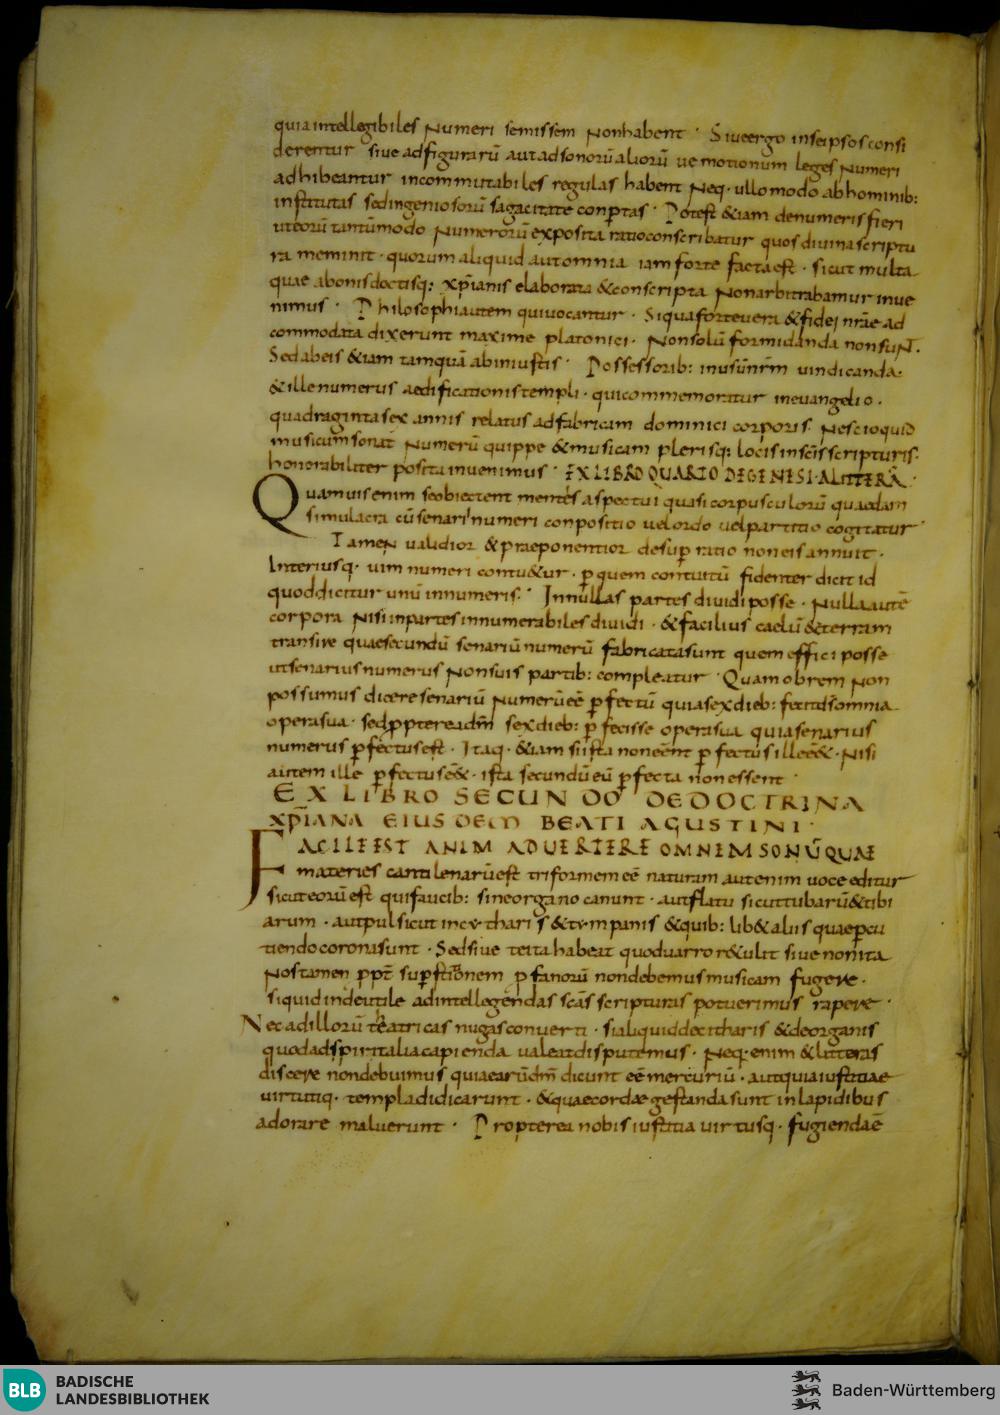 quia intellegibiles numeri semissem non habent · Siue ergo inseipsos consi
derentur siue ad figurarū aut ad sonorū aliorū ue motionum leges numeri
adhibeantur incommutabiles regulas habent Neq· ullo modo ab hominib:
institutas sed ingeniosorū sagacitate conꝑtas · Potest &iam de numeris fieri
ut eorū tantūmodo numerorū exposita ratio conscribatur quos diuina scriptu
ra meminit · quorum aliquid aut omnia iam forte facta est · sicut multa
quae abonis doctisq: xp̄ianis elaborata & conscripta non arbitrabamur inue
nimus · Philosophi autem qui uocantur · Si qua forte uera & fidei nr̄ae ad
commodata dixerunt maxime platonici · Nonsolū formidanda non sunt.
Sed ab eis &iam tamquā ab iniustis · Possessorib: in usūnr̄m uindicanda·
& ille numerus aedificationis templi · qui commemoratur in euangelio ·
quadraginta sex annis relatus ad fabricam dominici corporis Nescio quid
musicum sonat Numerū quippe & musicam plerisq: locis in sc̄is scripturis·
honorabiliter posita inuenimus · EX LIBRO QUARTO DE GENESI · A LITTERĀ ·
Quamuis enim se obiectent mentes aspectui quasi corpusculorū quaedam
simulacra cū senari numeri conpositio uel ordo uel partitio cogitatur ·
Tamen ualidior & praeponentior desuꝑ ratio non eis annuit ·
Interiusq· uim numeri contu&ur · ꝑ quem contuitū fidenter dicit id
quod dicitur unū in numeris · In nullas partes diuidi posse · Nulla autē
corpora nisi in partes innumerabiles diuidi · & facilius caelū & terram
transire quae secundū senariū numerū fabricata sunt quem effici posse
ut senarius numerus non suis partib: compleatur · Quam obrem non
possumus dicere senariū numerū eē ꝑfectū quia sex dieb: fecit d̄s omnia
opera sua · sed ꝓpterea dm̄ sex dieb: ꝑfecisse opera sua quia senarius
numerus ꝑfectus est · Itaq· &iam si ista non eēnt ꝑfectus ille eē& · Nisi
autem ille ꝑfectus eē& · ista secundū eū ꝑfecta non essent ·
EX LIBRO SECUNDO DE DOCTRINA
XP̄IANA EIUSDEM BEATI AGUSTINI ·
FACILE EST ANIM ADUERTERE OMNEM SONŪ QUAE
materies cantilenarū est triformem eē naturam aut enim uoce editur
sicut eorū est qui faucib: sine organo canunt · aut flatu sicut tubarū & tibi
arum · aut pulsi cut in cytharis & tympanis & quib: lib& aliis quae ꝑcu
tiendo coronasunt · Sed siue te ita habeat quod uarro r&ulit siue non ita
Nos tamen ꝓpt̄ suꝑstitionem ꝓfanorū non debemus musicam fugere ·
si quid inde utile ad intellegendas sc̄as scripturas potuerimus rapere ·
Nec ad illorū theatricas nugas conuerti · si aliquid de citharis & de organis
quod ad spiritalia capienda ualeat disputemus · Neq· enim & litteras
discere non debuimus quia earūdm̄ dicunt eē mercuriū · aut quia iustitiae
uirtutiq· templa didicarunt · & quae cordae gestanda sunt in lapidibus
adorare maluerunt · Propterea nobis iustitia uirtusq· fugienda ē
BLB BADISCHE
LANDESBIBLIOTHEK
Baden-Württemberg